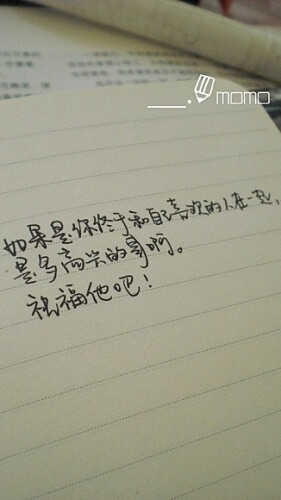 momo
如果是你终于和自己喜欢的人在一起，
是多高兴的事啊。
祝福他吧！